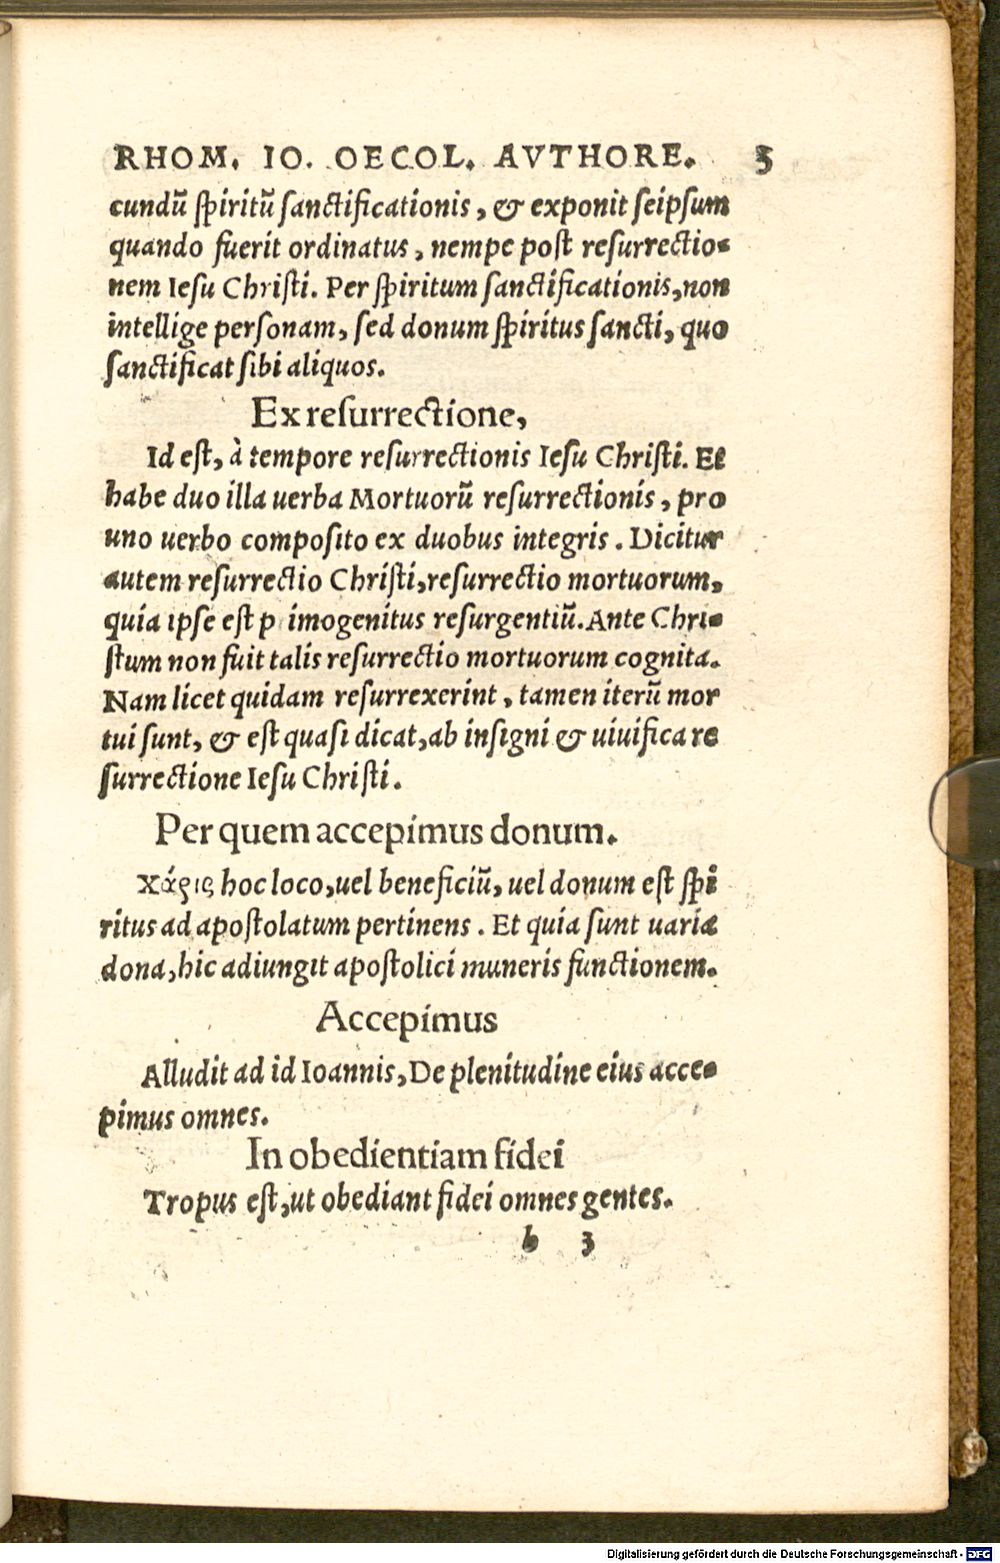 RHOM. IO. OECOL. AVTHORE. 3
cundũ ſpiritũ ſanctificationis, & exponit ſeipſum
quando fuerit ordinatus, nempe poſt reſurrectio-
nem Ieſu Chriſti. Per ſpiritum ſanctificationis, non
intellige perſonam, ſed donum ſpiritus ſancti, quo
ſanctificat ſibi aliquos.
Ex reſurrectione,
Id eſt, à tempore reſurrectionis Ieſu Chriſti. Et
habe duo illa uerba Mortuorũ reſurrectionis, pro
uno uerbo compoſito ex duobus integris. Dicitur
autem reſurrectio Chriſti, reſurrectio mortuorum,
quia ipſe eſt p imogenitus reſurgentiũ. Ante Chri-
ſtum non fuit talis reſurrectio mortuorum cognita.
Nam licet quidam reſurrexerint, tamen iterũ mor
tui ſunt, & eſt quaſi dicat, ab inſigni & uiuifica re
ſurrectione Ieſu Chriſti.
Per quem accepimus donum.
Χάρις hoc loco, uel beneficiũ, uel donum eſt ſpi
ritus ad apoſtolatum pertinens. Et quia ſunt uaria
dona, hic adiungit apoſtolici muneris functionem.
Accepimus
Alludit ad id Ioannis, De plenitudine eius acce-
pimus omnes.
In obedientiam fidei
Tropus eſt, ut obediant fidei omnes gentes.
b 3
Digitalisierung gefördert durch die Deutsche Forschungsgemeinschaft - DFG